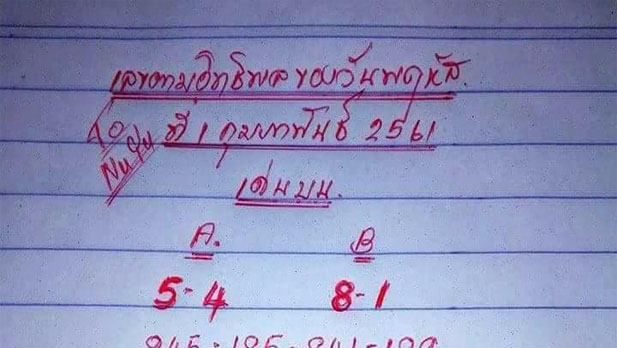 เลขตามอิทธิพล ของวันพฤหัส.
To NuYu ที่ 1 กุมภาพันธ์ 2561
เด่นบน.
A. B
5-4 8-1